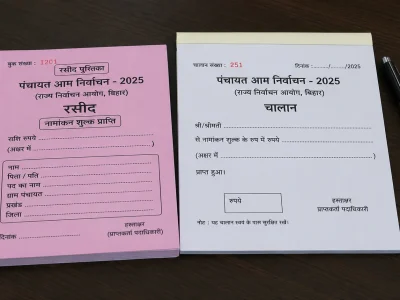 बुक संख्या : 1201
रसीद पुस्तिका
पंचायत आम निर्वाचन - 2025
(राज्य निर्वाचन आयोग, बिहार)
रसीद
नामांकन शुल्क प्राप्ति
राशि रुपये
(अक्षर में
)
नाम
पिता / पति
पद का नाम
ग्राम पंचायत
प्रखंड
जिला
हस्ताक्षर
दिनांक
(प्राप्तकर्ता पदाधिकारी)
चालान संख्या : 251
दिनांक : ......../......../2025
पंचायत आम निर्वाचन - 2025
(राज्य निर्वाचन आयोग, बिहार)
चालान
श्री/श्रीमती
से नामांकन शुल्क के रुप में रुपये
(अक्षर में
)
प्राप्त हुआ।
रुपये
हस्ताक्षर
प्राप्तकर्ता पदाधिकारी
नोट : यह चालान स्वयं के पास सुरक्षित रखें।